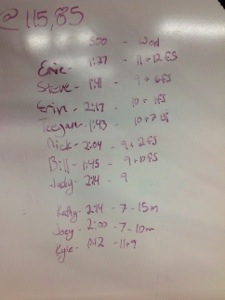 @ 115, 85
500 - Wod
Eric - 1:37 - 11+12 FS
Steve - 1:41 - 9+6FS
Erin - 2:17 - 10+1FS
Teegan - 1:43 - 10+7 FS
Nick - 2:04 - 9+2FS
Bill - 1:45 - 9+10FS
Judy - 2:14 - 9
Kathy - 2:14 - 7-15m
Joey - 2:00 - 7-10m
Kyle -